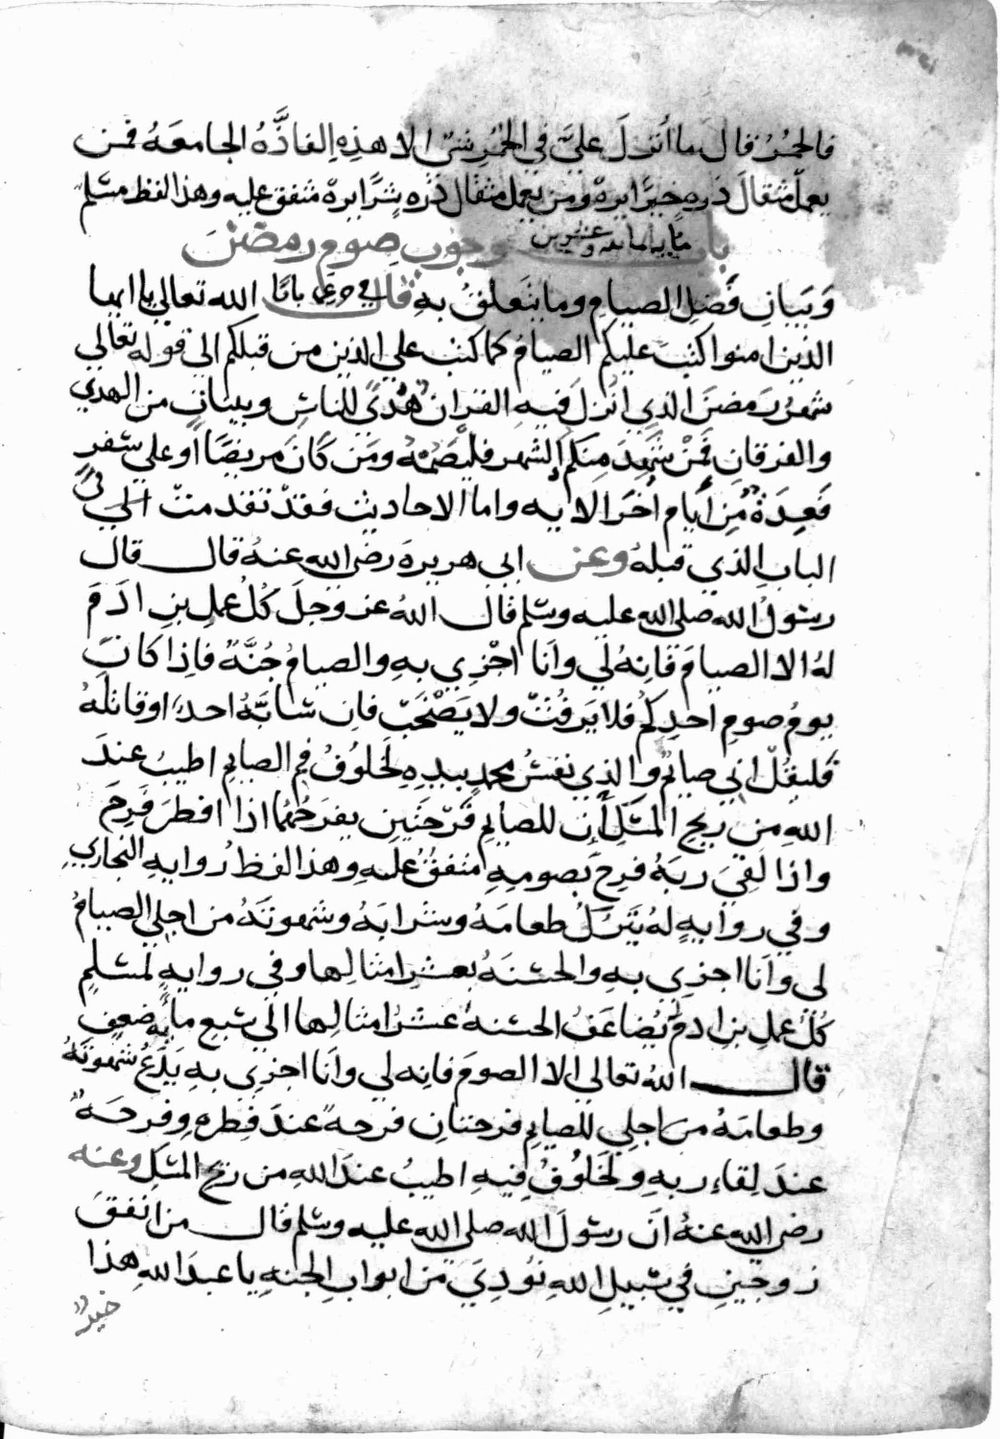 فالحمر قال ما أنزل عليَّ في الحمر شي الا هذه الفاذَّةُ الجامعَهُ فمن
يعمل مثقال ذره خيرًا يرهْ ومن يعمل مثقال ذرّه شرًّا يرهْ متفق عليه وهذا لفظ مسلم
باب وجوب صوم رمضن
وَبيَانِ فَضلِ الصيامِ وما يتَعلقُ بهِ قال الله تعالي يا ايها
الذين امنوا كتبَ عليكم الصيامُ كما كتبَ علي الذين من قبلكم الي قوله تعالي
شهرُ رَمضنَ الذي أُنزلَ فيهِ القرانُ هُدًى للناسِ وبيناتٍ من الهدي
والفرقانِ فَمنْ شَهِدَ مِنكمُ الشهر فليصُمْهُ ومَن كانَ مريضًا أو علي سفرٍ
فَعِدَةٌ مِن أيامٍ أُخَرَ الايه واما الاحاديث فقد تقدمتْ في
الباب الذي قبلهُ وعن ابي هريرةَ رضي الله عنهُ قال قال
رسولُ الله صلي الله عليه وسلم قال اللهُ عز وجلَ كُلُ عملِ بنِ ادَمَ
لهُ الا الصيامَ فانِهُ لي وأنا اجْزي بهِ والصيامُ جُنَّةٌ فاذِا كانَ
يومُ صومِ احدِكم فلا يَرفُثْ ولا يَصْخَبْ فان سابَّهُ احدٌ او قاتلَهُ
فليقُلْ اني صايمٌ والذي نفسُ محمدٍ بيدهِ لَخلُوفُ فمِ الصايمِ اطيبُ عندَ
اللهِ من ريحِ المسكِ للصايمِ فَرْحتَينِ يفرَحُهُما اذا افطرَ فَرِحَ
واذا لَقيَ ربَهُ فرِحَ بصومِهِ متفقُ عليهِ وهذا لفظُ روايهِ البخاري
وفي روايهٍ لهُ يَتركُ طعامَهُ وشرابَهُ وشهوتَهُ من اجلي الصيامُ
لي وأَنا اجزي بهِ والحسنَهُ بعشرِ امثالِها وفي روايهٍ لمسلمٍ
كُلُ عملِ بنِ ادمَ يُضاعَفُ الحسنهُ عَشرُ امثالِها الي سبع مأيه ضعفٍ
قال اللهُ تعالي الا الصومَ فانِه لي وأنا اجزي بهِ يَدَعُ شهوتَهُ
وطعامَهُ من اجلي للصايمِ فرحتانِ فرحهً عندَ فِطرهِ وفرحَهً
عندَ لِقاءِ ربهِ ولَخَلُوفُ فيهِ اطيبُ عندَ اللهِ من ريحِ المسكِ وعنه
رضي الله عنهُ انَ رسولَ الله صلي الله عليه وسلم قال من انفقَ
زوجينِ في سَبيلِ اللهِ نُودِيَ من ابوابِ الجنهِ يا عبدَ اللهِ هذا
خير